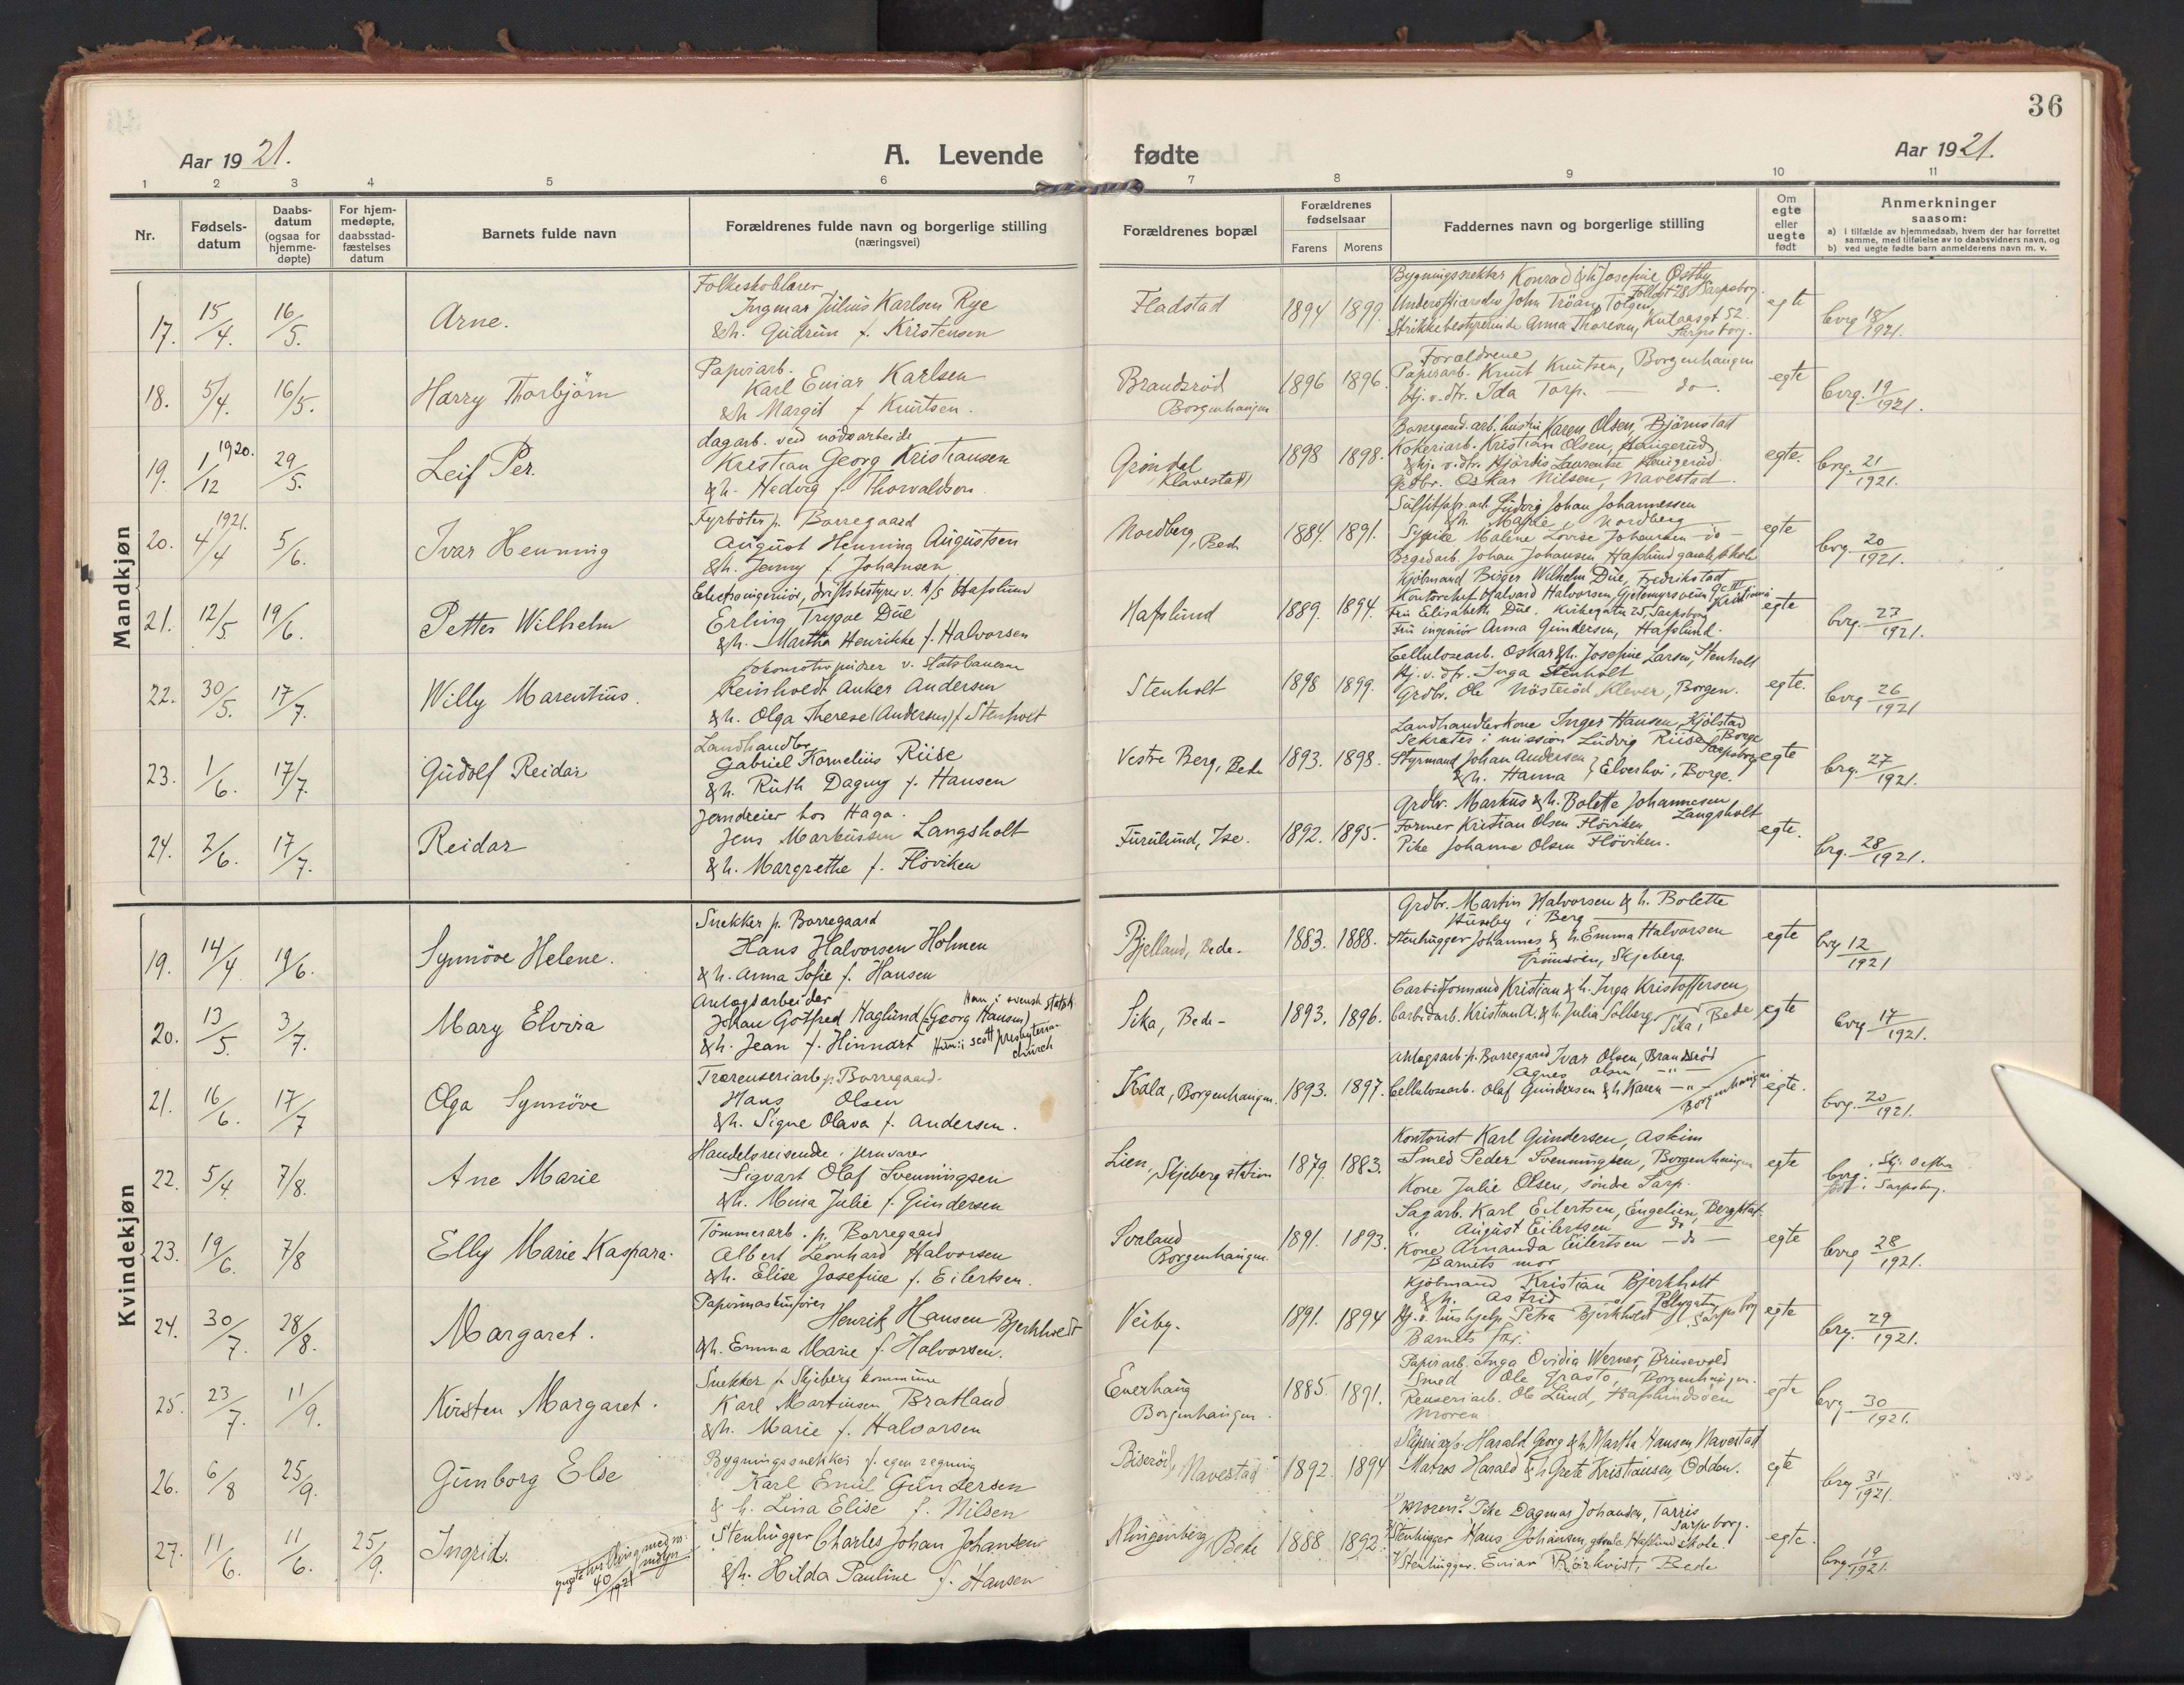 36
Aar 1921.
A. Levende fødte
Aar 1921.
1 2 3 4 5 6 7 8 9 10 11
Nr.
Fødsels-
datum
Daabs-
datum
(ogsaa for
hjemme-
døpte)
For hjem-
medøpte,
daabsstad-
fæstelses
datum
Barnets fulde navn
Forældrenes fulde navn og borgerlige stilling
(næringsvei)
Forældrenes bopæl
Forældrenes
fødselsaar
Farens Morens
Faddernes navn og borgerlige stilling
Om
egte
eller
uegte
født
Anmerkninger
saasom:
a) i tilfælde av hjemmedaab, hvem der har forrettet
samme, med tilføielse av to daabsvidners navn, og
b) ved uegte fødte barn anmelderens navn m. v.
Mandkjøn
17. 15/4. 16/5. Arne.
Folkeskolelærer
Ingmar Julius Karlsen Rye
& h. Gudrun f. Kristensen
Fladstad 1894 1899.
Konrad & h. Josefine Østby
Underofficerselev John Trøan, Tolgen
Strikkebestyrerinde Anna Thoresen,
Sarpsborg.
egte
bvrg 18/1921.
18. 5/4. 16/5. Harry Thorbjörn
Papirarb.
Karl Einar Karlsen
& h. Margit f. Knutsen.
Brandsrød
Borgenhaugen
1896 1896.
Forældrene
Papirarb. Knut Knutsen, Borgenhaugen
Hj. v. dtr. Ida Torp. — do —
egte
bvrg. 19/1921.
19. 1920. 1/12 29/5. Leif Per.
dagarb. ved nødsarbeide
Kristian Georg Kristiansen
& h. Hedvig f. Thorvaldsen.
Grøndal
Klavestad
1898 1898.
Borregaard. arb. hustru Karen Olsen, Bjørnstad
Kokeriarb. Kristian Olsen, Haugerud
& hj. v. dtr. Hjördis Laurentse Haugerud
Grdbr. Oskar Nilsen, Navestad.
egte.
bvrg. 21/1921.
20. 1921. 4/4 5/6. Ivar Henning
Fyrböter p. Borregaard
August Henning Augustsen
& h. Jenny f. Johansen
Nordberg, Bede
1884. 1891.
Ludvig Johan Johannessen
& h. Marie, Nordberg
Sypike Malene Lovise Johansen — do —
Johan Johansen Hafslund gamle skole
egte
bvrg. 20/1921.
21. 12/5 19/6. Petter Wilhelm
Elektroingeniør, driftsbestyrer v. A/S Hafslund
Erling Trygve Düe
& h. Martha Henrikke f. Halvorsen
Hafslund 1889. 1894.
Kjøbmand Birger Wilhelm Düe, Fredrikstad
Kontorchef Halvard Halvorsen, Gjetemyrsveien
Kristiania
Frk Elisabeth Düe. Kirkegaten 25, Sarpsborg
Fru ingeniør Anna Gundersen, Hafslund.
egte
bvrg. 23/1921.
22. 30/5. 17/7. Willy Marentius.
Lokomotivpudser v. Statsbanerne
Reinholdt Anker Andersen
& h. Olga Therese (Andersen) f. Stenholt
Stenholt 1898 1899.
Cellulosearb. Oskar & h. Josefine Larsen, Stenholt
Hj. v. dtr. Inga Stenholt
Grdbr. Ole Nösteröd Klever, Borgen.
egte.
bvrg 26/1921
23. 1/6. 17/7. Gudolf Reidar
Landhandler
Gabriel Kornelius Riise
& h. Ruth Dagny f. Hansen
Vestre Berg, Bede
1893. 1898.
Landhandlerkone Inger Hansen, Kjölstad
Borge
Sekretær i mission Ludvig Riise, Sarpsborg
Styrmand Johan Andersen
& h. Hanna } Elverhöi, Borge.
egte
bvrg. 27/1921.
24. 2/6. 17/7. Reidar
Jerndreier hos Haga.
Jens Markussen Langsholt
& h. Margrethe f. Flöviken
Furulund, Ise.
1892. 1895.
Grdbr. Markus & h. Bolette Johannesen
Langsholt
Former Kristian Olsen Flöviken
Pike Johanne Olsen Flöviken.
egte.
bvrg. 28/1921.
Kvindekjøn
19. 14/4 19/6. Synnöve Helene.
Snekker p. Borregaard
Hans Halvorsen Holmen
& h. Anna Sofie f. Hansen
Bjelland, Bede.
1883. 1888.
Grdbr. Martin Halvorsen & h. Bolette
Husby i Berg
Stenhugger Johannes & h. Emma Halvorsen
Grimsöen, Skjeberg
egte
bvrg 12/1921
20. 13/5. 3/7. Mary Elvira
Anlægsarbeider
Johan Gotfred Haglund (Georg Hansen)
Han i svensk statsk.
& h. Jean f. Hinnart
Hun: i scott presbyterian
church
Sika, Bede -
1893. 1896.
Carbidformand Kristian & h. Inga Kristoffersen,
Carbidarb. Kristian A. & h. Julia Solberg
Sika, Bede
egte
bvrg 17/1921.
21. 16/6. 17/7 Olga Synnöve
Trærenseriarb p. Borregaard.
Hans Olsen
& h. Signe Olava f. Andersen.
Kala, Borgenhaugen.
1893. 1897.
Anlægsarb. p. Borregaard Ivar Olsen, Brandsrød
Agnes Olsen — " —
Cellulosearb. Olaf Gundersen & h. Karen — " —
Borgenhaugen
egte.
bvrg. 20/1921.
22. 5/4. 7/8. Ane Marie
Handelsreisende i jernvarer
Sigvart Olaf Svenningsen
& h. Musa Julie f. Gundersen
Lien, Skjeberg station
1879. 1883.
Kontorist Karl Gundersen, Askim
Smed Peder Svenningsen, Borgenhaugen
Kone Julie Olsen, söndre Sarp.
egte
bvrg.
født i Sarpsborg.
23. 19/6. 7/8 Elly Marie Kaspara.
Tömmerarb. p. Borregaard
Albert Leonhard Halvorsen
& h. Elise Josefine f. Eilertsen.
Sorland
Borgenhaugen.
1891. 1893.
Sagarb. Karl Eilertsen, Engelien, Bergstat.
" August Eilertsen — do —
Kone Amanda Eilertsen — do —
Barnets mor
egte
bvrg 28/1921.
24. 30/7. 28/8. Margaret.
Papirmaskinfører
Henrik Hansen Bjerkholdt
& h. Emma Marie f. Halvorsen.
Veiby.
1891. 1894
Kjöbmand Kristian Bjerkholt
& h. Astrid
Hj. v. hushjelp Petra Bjerkholdt
Sarpsborg
Barnets far.
egte
bvrg. 29/1921.
25. 23/7. 11/9. Kirsten Margaret.
Snekker f. Skjeberg kommune
Karl Martinsen Bratland
& h. Marie f. Halvorsen
Enerhaug
Borgenhaugen.
1885. 1891.
Papirarb. Inga Ovidia Werner, Brusevold
Smed Ole Grasto, Borgenhaugen.
Renseriarb. Ole Lund, Hafslundsöen
Moren
egte
bvrg 30/1921.
26. 6/8 25/9. Gunborg Else
Bygningssnekker f. egen regning
Karl Emil Gundersen
& h. Lina Elise f. Nilsen
Biseröd, Navestad
1892. 1894
Sliperiarb. Harald Georg & h. Martha Hansen, Navestad
Matros Harald & h. Grete Kristiansen, Odden.
egte
bvrg 31/1921.
27. 11/6. 11/6. 25/9. Ingrid.
40/1921
Stenhugger Charles Johan Johansen
& h. Hilda Pauline f. Hansen
Klingenberg, Bede
1888 1892.
1) Moren. 2) Pike Dagmar Johansen, Tarris
Sarpsborg.
3) Stenhugger Hans Johansen, gamle Hafslund skole.
4) Stenhugger. Einar Rörkvist, Bede
egte.
bvrg 19/1921.